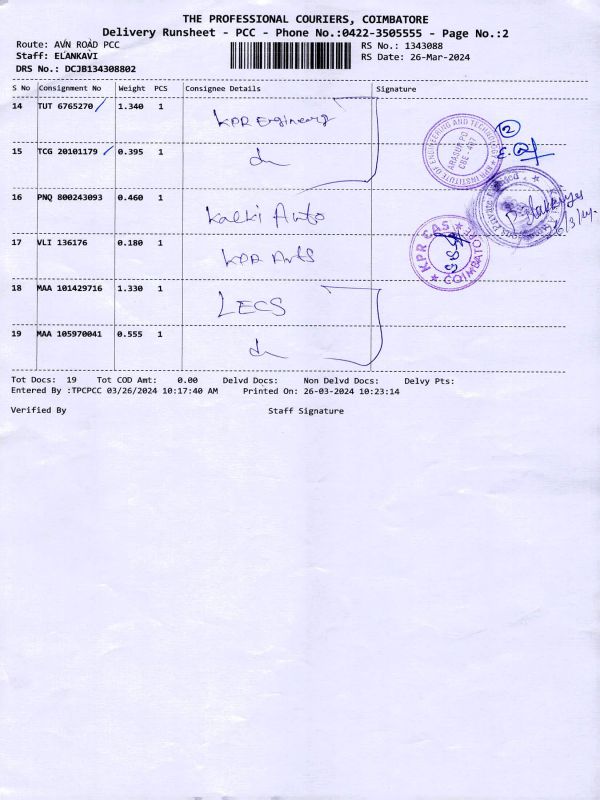 THE PROFESSIONAL COURIERS, COIMBATORE
Delivery Runsheet - PCC - Phone No.:0422-3505555 - Page No.:2
Route: AVN ROAD PCC
RS No.: 1343088
Staff: ELANKAVI
RS Date: 26-Mar-2024
DRS No.: DCJB134308802
S No Consignment No Weight PCS Consignee Details Signature
14 TUT 6765270 1.340 1 KPR Engineerg
15 TCG 20101179 0.395 1
16 PNQ 800243093 0.460 1 Kalki Auto
17 VLI 136176 0.180 1 KPR Arts
18 MAA 101429716 1.330 1 LECS
19 MAA 105970041 0.555 1
KPR INSTITUTE OF ENGINEERING AND TECHNOLOGY
ARASUR PO
CBE - 407
2
26/3/24
KPR CAS
COIMBATORE
Tot Docs: 19 Tot COD Amt: 0.00 Delvd Docs: Non Delvd Docs: Delvy Pts:
Entered By :TPCPCC 03/26/2024 10:17:40 AM Printed On: 26-03-2024 10:23:14
Verified By Staff Signature